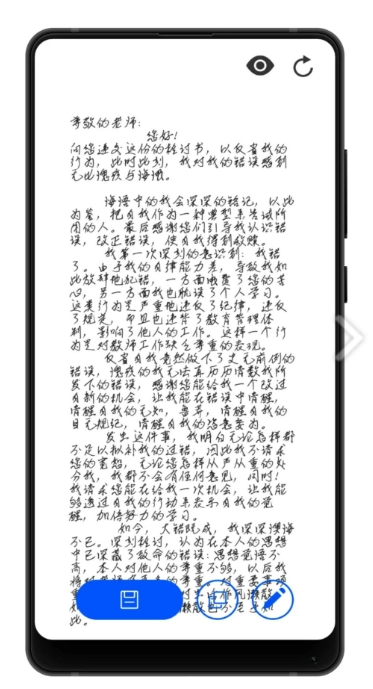 尊敬的老师:
您好!
向您递交这份的检讨书，以反省我的
行为，此时此刻，我对我的错误感到
无比愧疚与悔恨。
悔悟中的我会深深的铭记，以此
为答，把自我作为一种典型来告诫所
困的人。最后感谢您们引导我认识错
误，改正错误，使自我得到救赎。
我第一次深刻的意识到：我错
了。由于我的自律能力差，导致我如
此放肆地犯错，一方面浪费了您的苦
心，另一方面我也耽误了个人学习。
这类行为是严重地违反了纪律，违反
了规定，而且也违背了教育管理体
制，影响了他人的工作。这样一个行
为是对教师工作缺乏尊重的表现。
反省自我竟然做下了史无前例的
错误，愧疚的我无法再历历清数我所
发下的错误，感谢您能给我一个改过
自新的机会，让我能在错误中清醒，
清醒自我的无知，鲁莽，清醒自我的
目无规纪，清醒自我的恣意妄为。
发生这件事，我明白无论怎样都
不足以拟补我的过错，因此我不请求
您的宽恕，无论您怎样从严从重的处
分我，我都不会有任何意见，同时!
我请求您能在给我一次机会，让我能
够透过自我的行动来表示自我的觉
醒，加倍努力的学习。
如今，大错既成，我深深懊悔
不已。深刻检讨，认为在本人的思想
中已深藏了致命的错误:思想觉悟不
高，本人对他人的尊重不够，以后我
此。